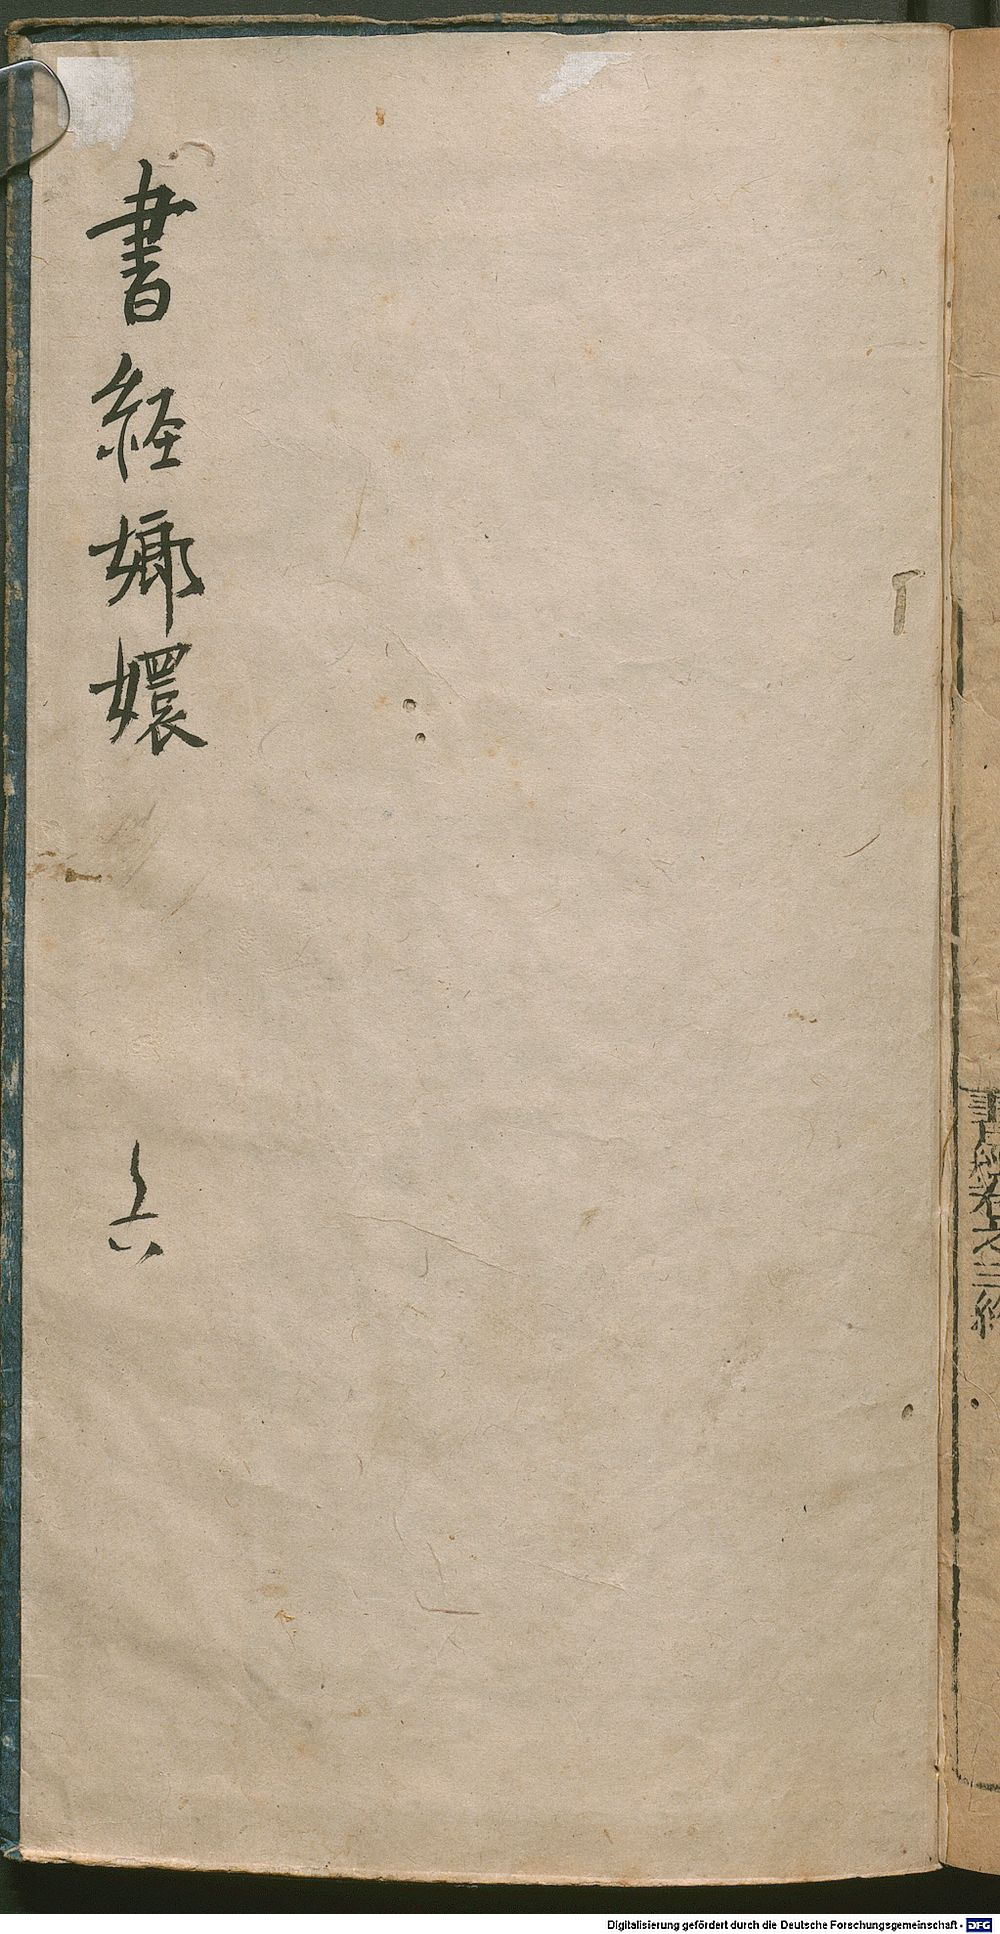 書經嫏嬛
六
書經卷之三終
Digitalisierung gefördert durch die Deutsche Forschungsgemeinschaft - DFG